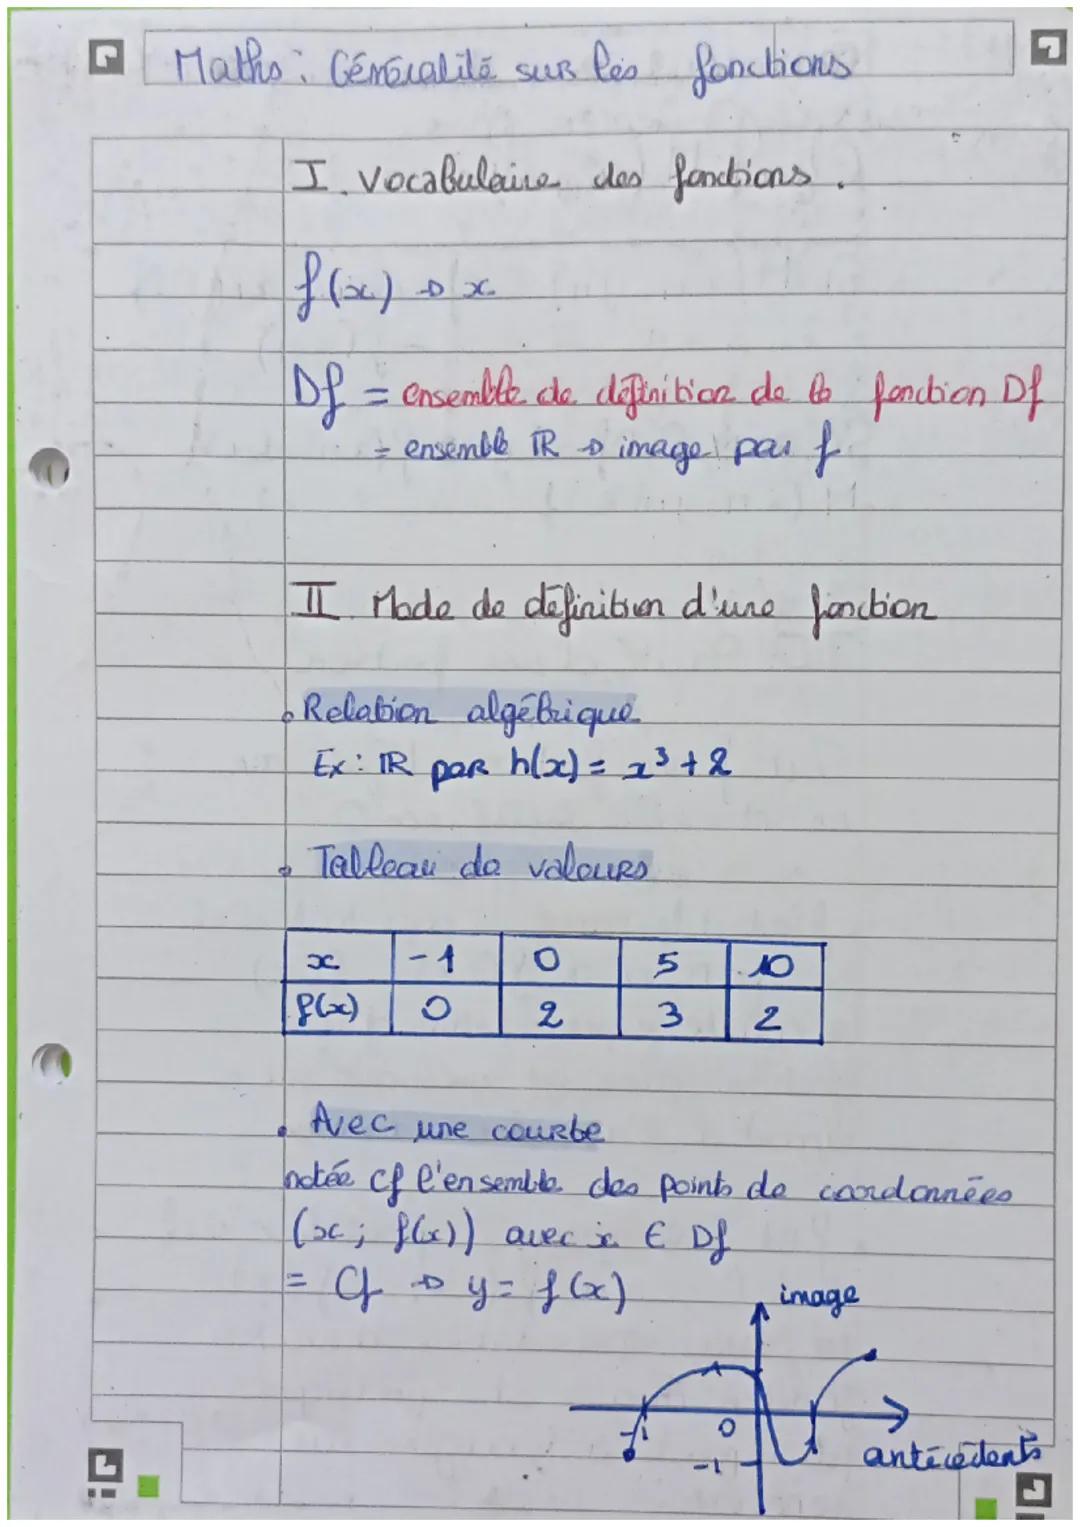 Maths : Généralité sur les fonctions
I. Vocabulaire des fonctions.
f(x) → x
Df = ensemble de définition de la fonction Df
= ensemble ℝ → image par f
II Mode de définition d'une fonction
• Relation algébrique
Ex : ℝ par h(x) = x³ + 2
• Tableau de valeurs
x -1 0 5 10
f(x) 0 2 3 2
• Avec une courbe
notée Cf l'ensemble des points de coordonnées
(x ; f(x)) avec x ∈ Df
= Cf → y = f(x)
image
-1 0
-1
antécédents